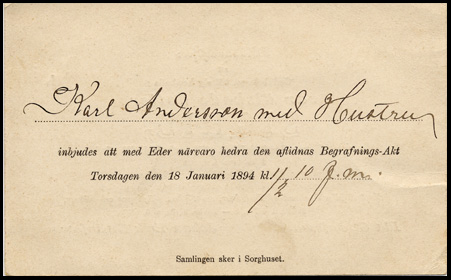 Karl Andersson med Hustru
inbjudes att med Eder närvaro hedra den aflidnas Begrafnings-Akt
Torsdagen den 18 Januari 1894 kl. 1/2 10 f. m.
Samlingen sker i Sorghuset.